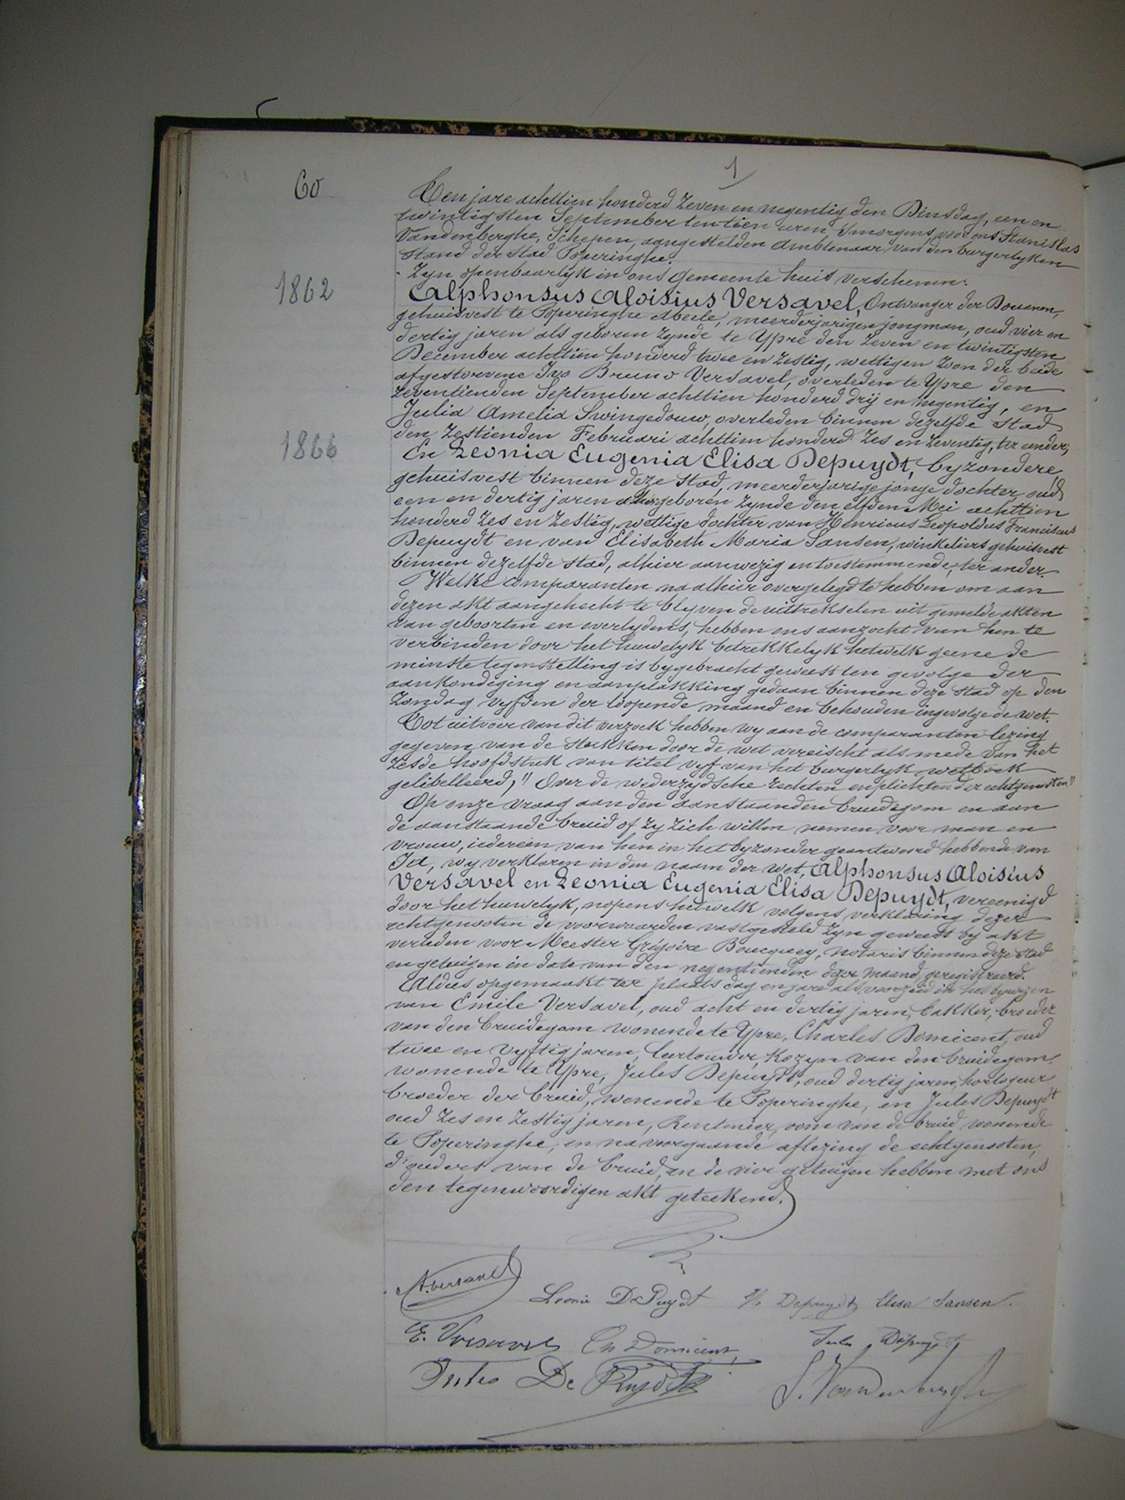 1
60
Ten jare achttien honderd zeven en negentig den Dinsdag, een en
twintigsten September ten tien uren smorgens voor ons Stanislas
Vandenberghe, Schepen, aangestelden Ambtenaar van den burgerlyken
stand der stad Poperinghe.
Zyn openbaarlyk in ons Gemeente huis verschenen:
1862
Alphonsus Aloisius Versavel, Ontvanger der Douanen,
gehuisvest te Poperinghe Abeele, meerderjarigen jongman, oud vier en
dertig jaren als geboren zynde te Ypre den zeven en twintigsten
December achttien honderd twee en zestig, wettigen zoon der beide
afgestorvene Ivo Bruno Versavel, overleden te Ypre den
zeventienden September achttien honderd drij en negentig, en
Julia Amelia Swingedouw, overleden binnen dezelfde stad
den zestienden Februari achttien honderd zes en zeventig, ter eender,
1866
En Leonia Eugenia Elisa Depuydt, byzondere,
gehuisvest binnen deze stad, meerderjarige jonge dochter, oud
een en dertig jaren als geboren zynde den elfden Mei achttien
honderd zes en zestig, wettige dochter van Henricus Leopoldus Franciscus
Depuydt en van Elisabeth Maria Sansen, winkeliers gehuisvest
binnen dezelfde stad, alhier aanwezig en toestemmende, ter ander.
Welke comparanten na alhier overgelegd te hebben om aan
dezen akt aangehecht te blyven de uittrekselen uit gemelde akten
van geboorten en overlydens, hebben ons aanzocht van hen te
verbinden door het huwelyk betrekkelyk hetwelk geene de
minste tegenstelling is bygebracht geweest ten gevolge der
aankondiging en aanplakking gedaan binnen deze stad op den
Zondag vyfden der loopende maand en behouden ingevolge de wet.
Tot uitvoer van dit verzoek hebben wy aan de comparanten lezing
gegeven van de stukken door de wet vereischt als mede van het
zesde hoofdstuk van titel vyf van het burgerlyk wetboek
gelibelleerd, "Over de wederzydsche rechten en plichten der echtgenooten"
Op onze vraag aan den aanstaanden bruidegom en aan
de aanstaande bruid of zy zich willen nemen voor man en
vrouw, iedereen van hen in het byzonder geantwoord hebbende van
Ja, wy verklaren in den naam der wet, Alphonsus Aloisius
Versavel en Leonia Eugenia Elisa Depuydt, vereenigd
door het huwelyk, nopens hetwelk volgens verklaring dezer
echtgenooten de voorwaarden vastgesteld zyn geweest by akt
verleden voor Meester Grégoire Boucquey, notaris binnen deze stad
en getuigen in date van den negentienden dezer maand, geregistreerd.
Aldus opgemaakt ter plaats dag en jare als voorzeid in het bywezen
van Emile Versavel, oud acht en dertig jaren, bakker, broeder
van den bruidegom wonende te Ypre, Charles Domicent, oud
twee en vyftig jaren, leertouwer, kozyn van den bruidegom
wonende te Ypre, Jules Depuydt, oud dertig jaren, horlogeur
broeder der bruid, wonende te Poperinghe, en Jules Depuydt
oud zes en zestig jaren, Rentenier, oom van de bruid wonende
te Poperinghe, en na voorgaande aflezing de echtgenooten,
d'ouders van de bruid, en de vier getuigen hebben met ons
den tegenwoordigen akt geteekend.
A. Versavel
Leonie DePuydt
Depuydt Elisa Sansen.
E. Versavel
Ch Domicent
Jules Depuydt
Jules De Puydt
S. Vandenberghe